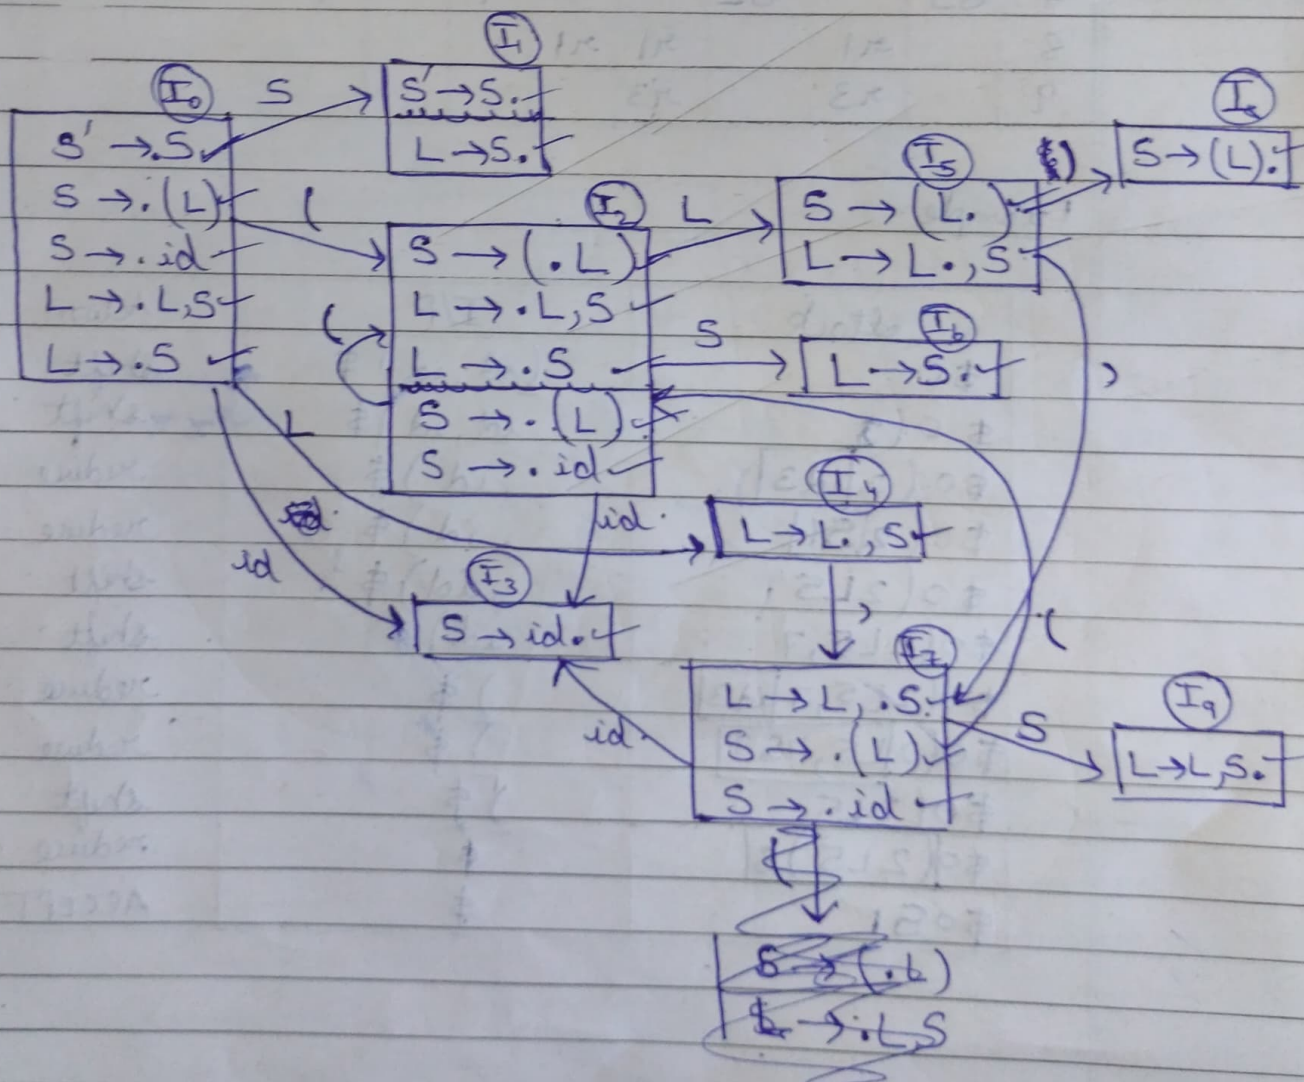 I₀
S
S' → .S
S → .(L)
S → .id
L → .L,S
L → .S
I₁
S' → S.
L → S.
(
I₂
S → (.L)
L → .L,S
L → .S
S → .(L)
S → .id
(
L
I₅
S → (L.)
L → L.,S
)
S → (L).
S
I₆
L → S.
,
L
id
id.
I₃
S → id.
I₄
L → L.,S
,
(
I₇
L → L,.S
S → .(L)
S → .id
id.
S
I₉
L → L,S.
(
S → (.L)
L → .L,S